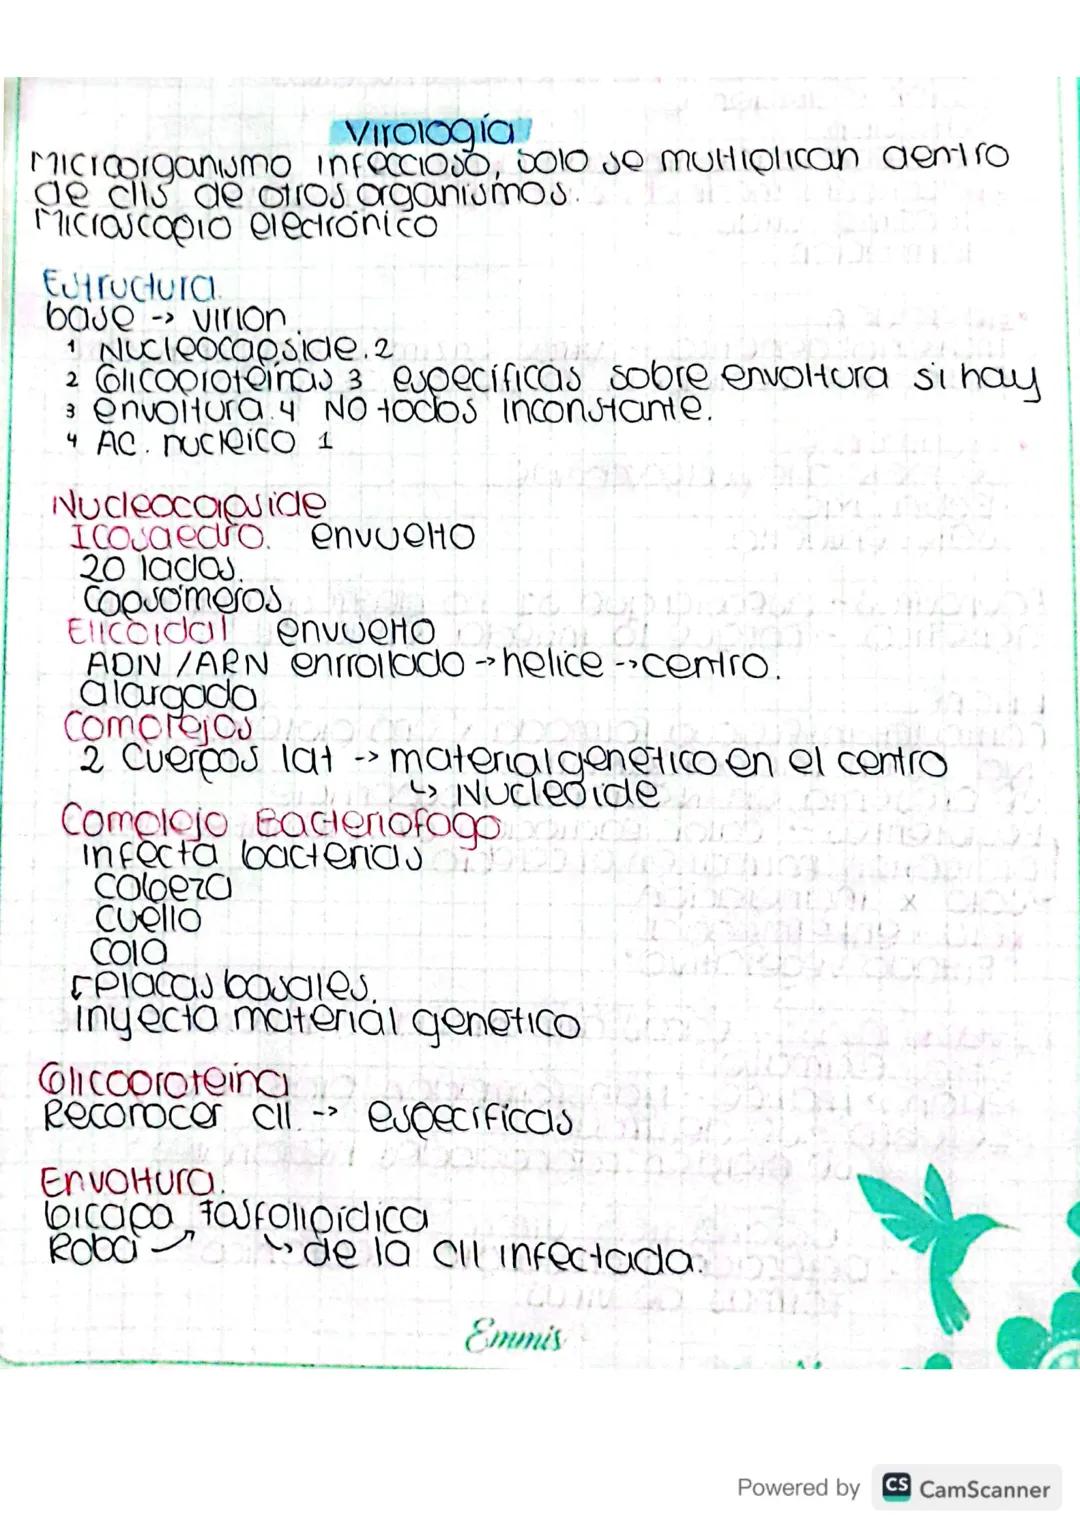 Virología
Microorganismo infeccioso, solo se multiplican dentro
de clls de otros organismos.
Microscopio electrónico
Estructura.
base -> virion.
1 Nucleocapside. 2
2 Glicoproteinas 3 específicas sobre envoltura si hay
3 envoltura. 4 NO todos inconstante.
4 AC. nucleico 1
Nucleocapside
Icosaedro. envuelto
20 lados.
Capsómeros
Elicoidal envuelto
ADN / ARN enrrollado -> helice -> centro.
alargado
Complejos
2 Cuerpos lat -> material genético en el centro
↳ Nucleoide
Complejo Bacteriofago
infecta bacterias
cabeza
cuello
cola
Placas basales.
inyecta material genético
Glicoproteina
Reconocer cll. -> específicas
Envoltura.
bicapa fosfolipídica
Roba ↗ ↳ de la cll infectada.
Emmis
Powered by CS CamScanner